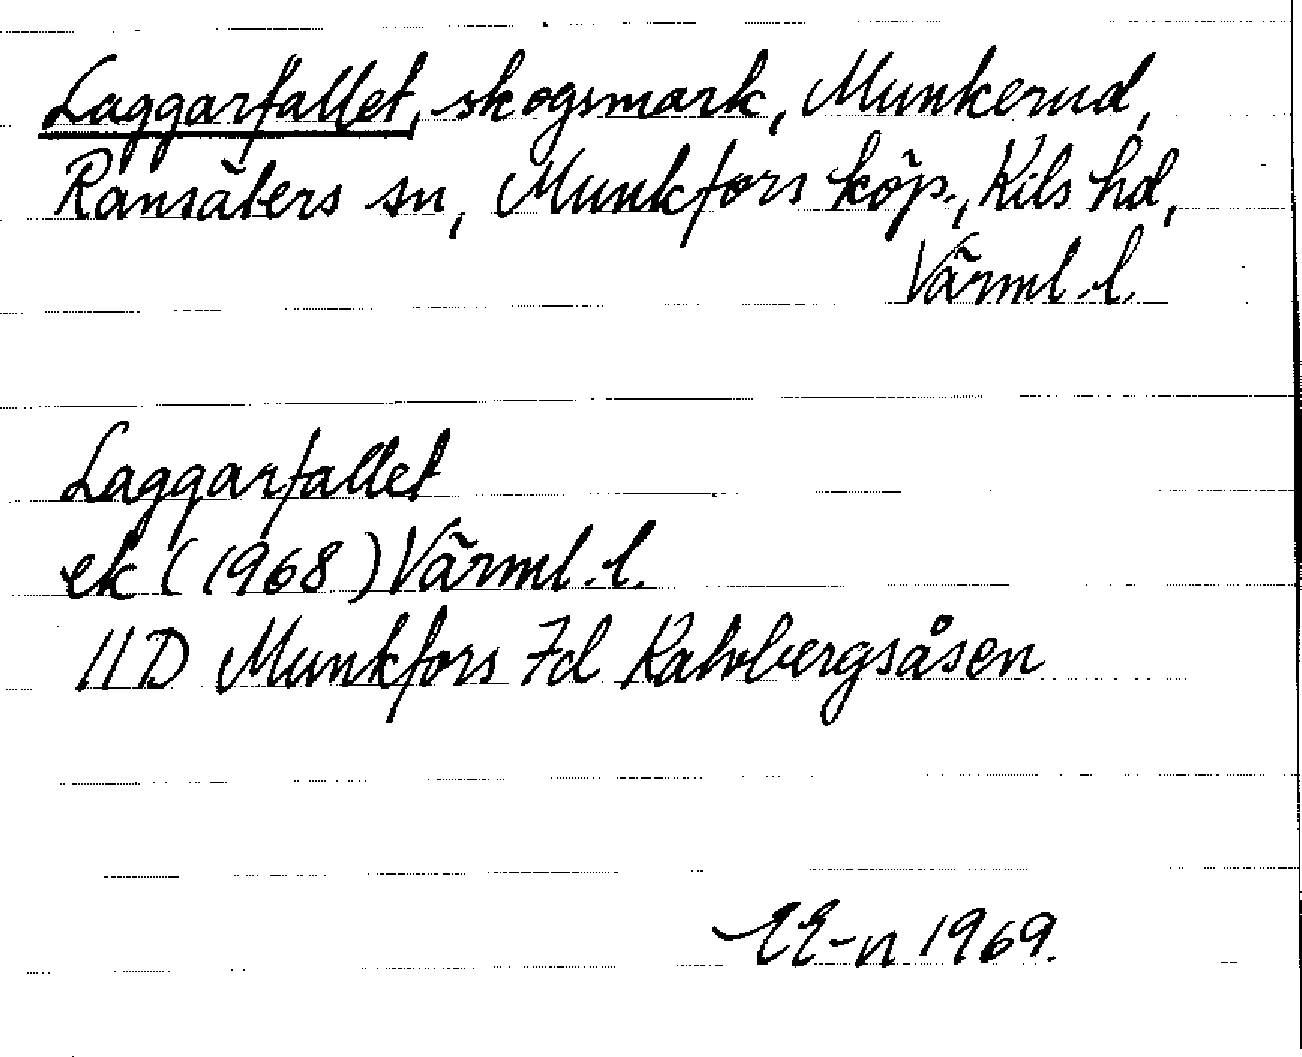 Laggarfallet, skogsmark, Munkerud,
Ransäters sn, Munkfors köp., Kils hd,
Värml. l.
Laggarfallet
ek (1968) Värml. l.
11D Munkfors 7d Kalvbergsåsen
EE-n 1969.